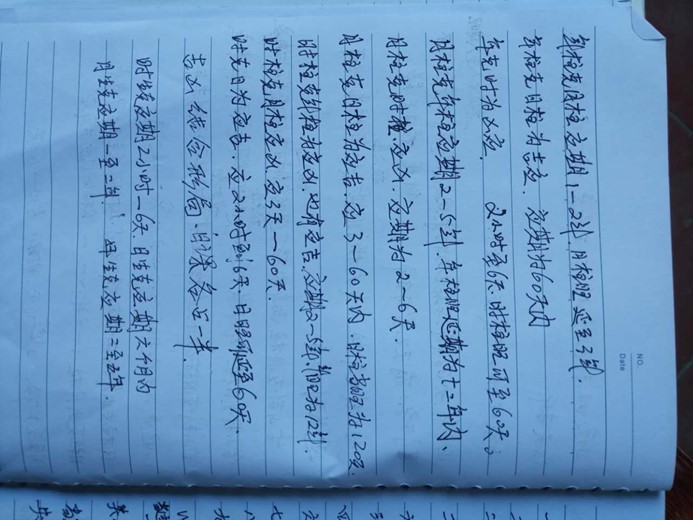 NO.
Date
年柱克月柱应期1-2年.月柱旺延至3年.
年柱克日柱为应,应期为60天内
年克时为凶应. 2小时至6天.时柱旺可至60天。
月柱克年柱应期2~5年.年柱旺延期为十二年内、
月柱克时柱应凶 应期为2~6天.
月柱克日柱为应吉.应3~60天内.日柱旺为120天
时柱克年柱为应凶,也有应吉.应期2~5年,旺为12年.
时柱克月柱应凶 应3天一60天.
时克日为应吉.应2小时到6天.日旺可延至60天.
吉凶结合形局.日课各占一半.
时生克应期2小时一6天.日生克应期六个月内
月生克应期一至二年 年生克应期二至五年.